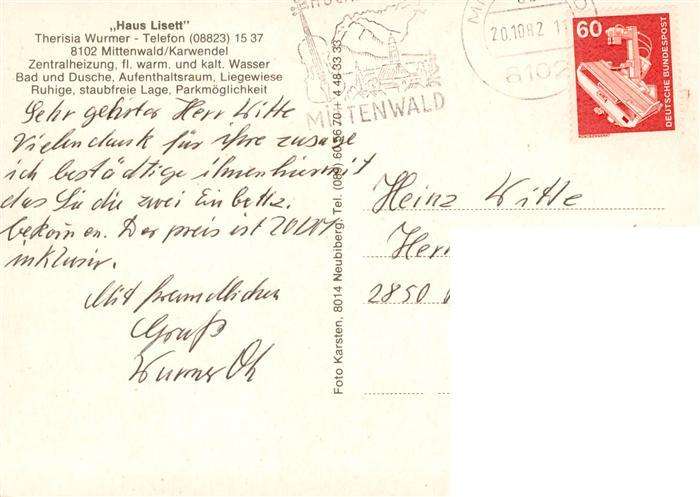 „Haus Lisett"
Therisia Wurmer - Telefon (08823) 15 37
8102 Mittenwald/Karwendel
Zentralheizung, fl. warm. und kalt. Wasser
Bad und Dusche, Aufenthaltsraum, Liegewiese
Ruhige, staubfreie Lage, Parkmöglichkeit
Sehr geehrter Herr Witte
Vielen dank für Ihre zusage
ich bestädtige ihnen hiermit
das Sie die zwei Einbettz.
bekommen. Der preis ist 20 DM
inklusiv.
Mit freundlichen
Gruß
Wurmer
Foto Karsten, 8014 Neubiberg, Tel. (089) 60 56 70 + 4 48 53 33
MITTENWALD
20.10.82
8102
60
DEUTSCHE BUNDESPOST
Heinz Witte
Herr
2850